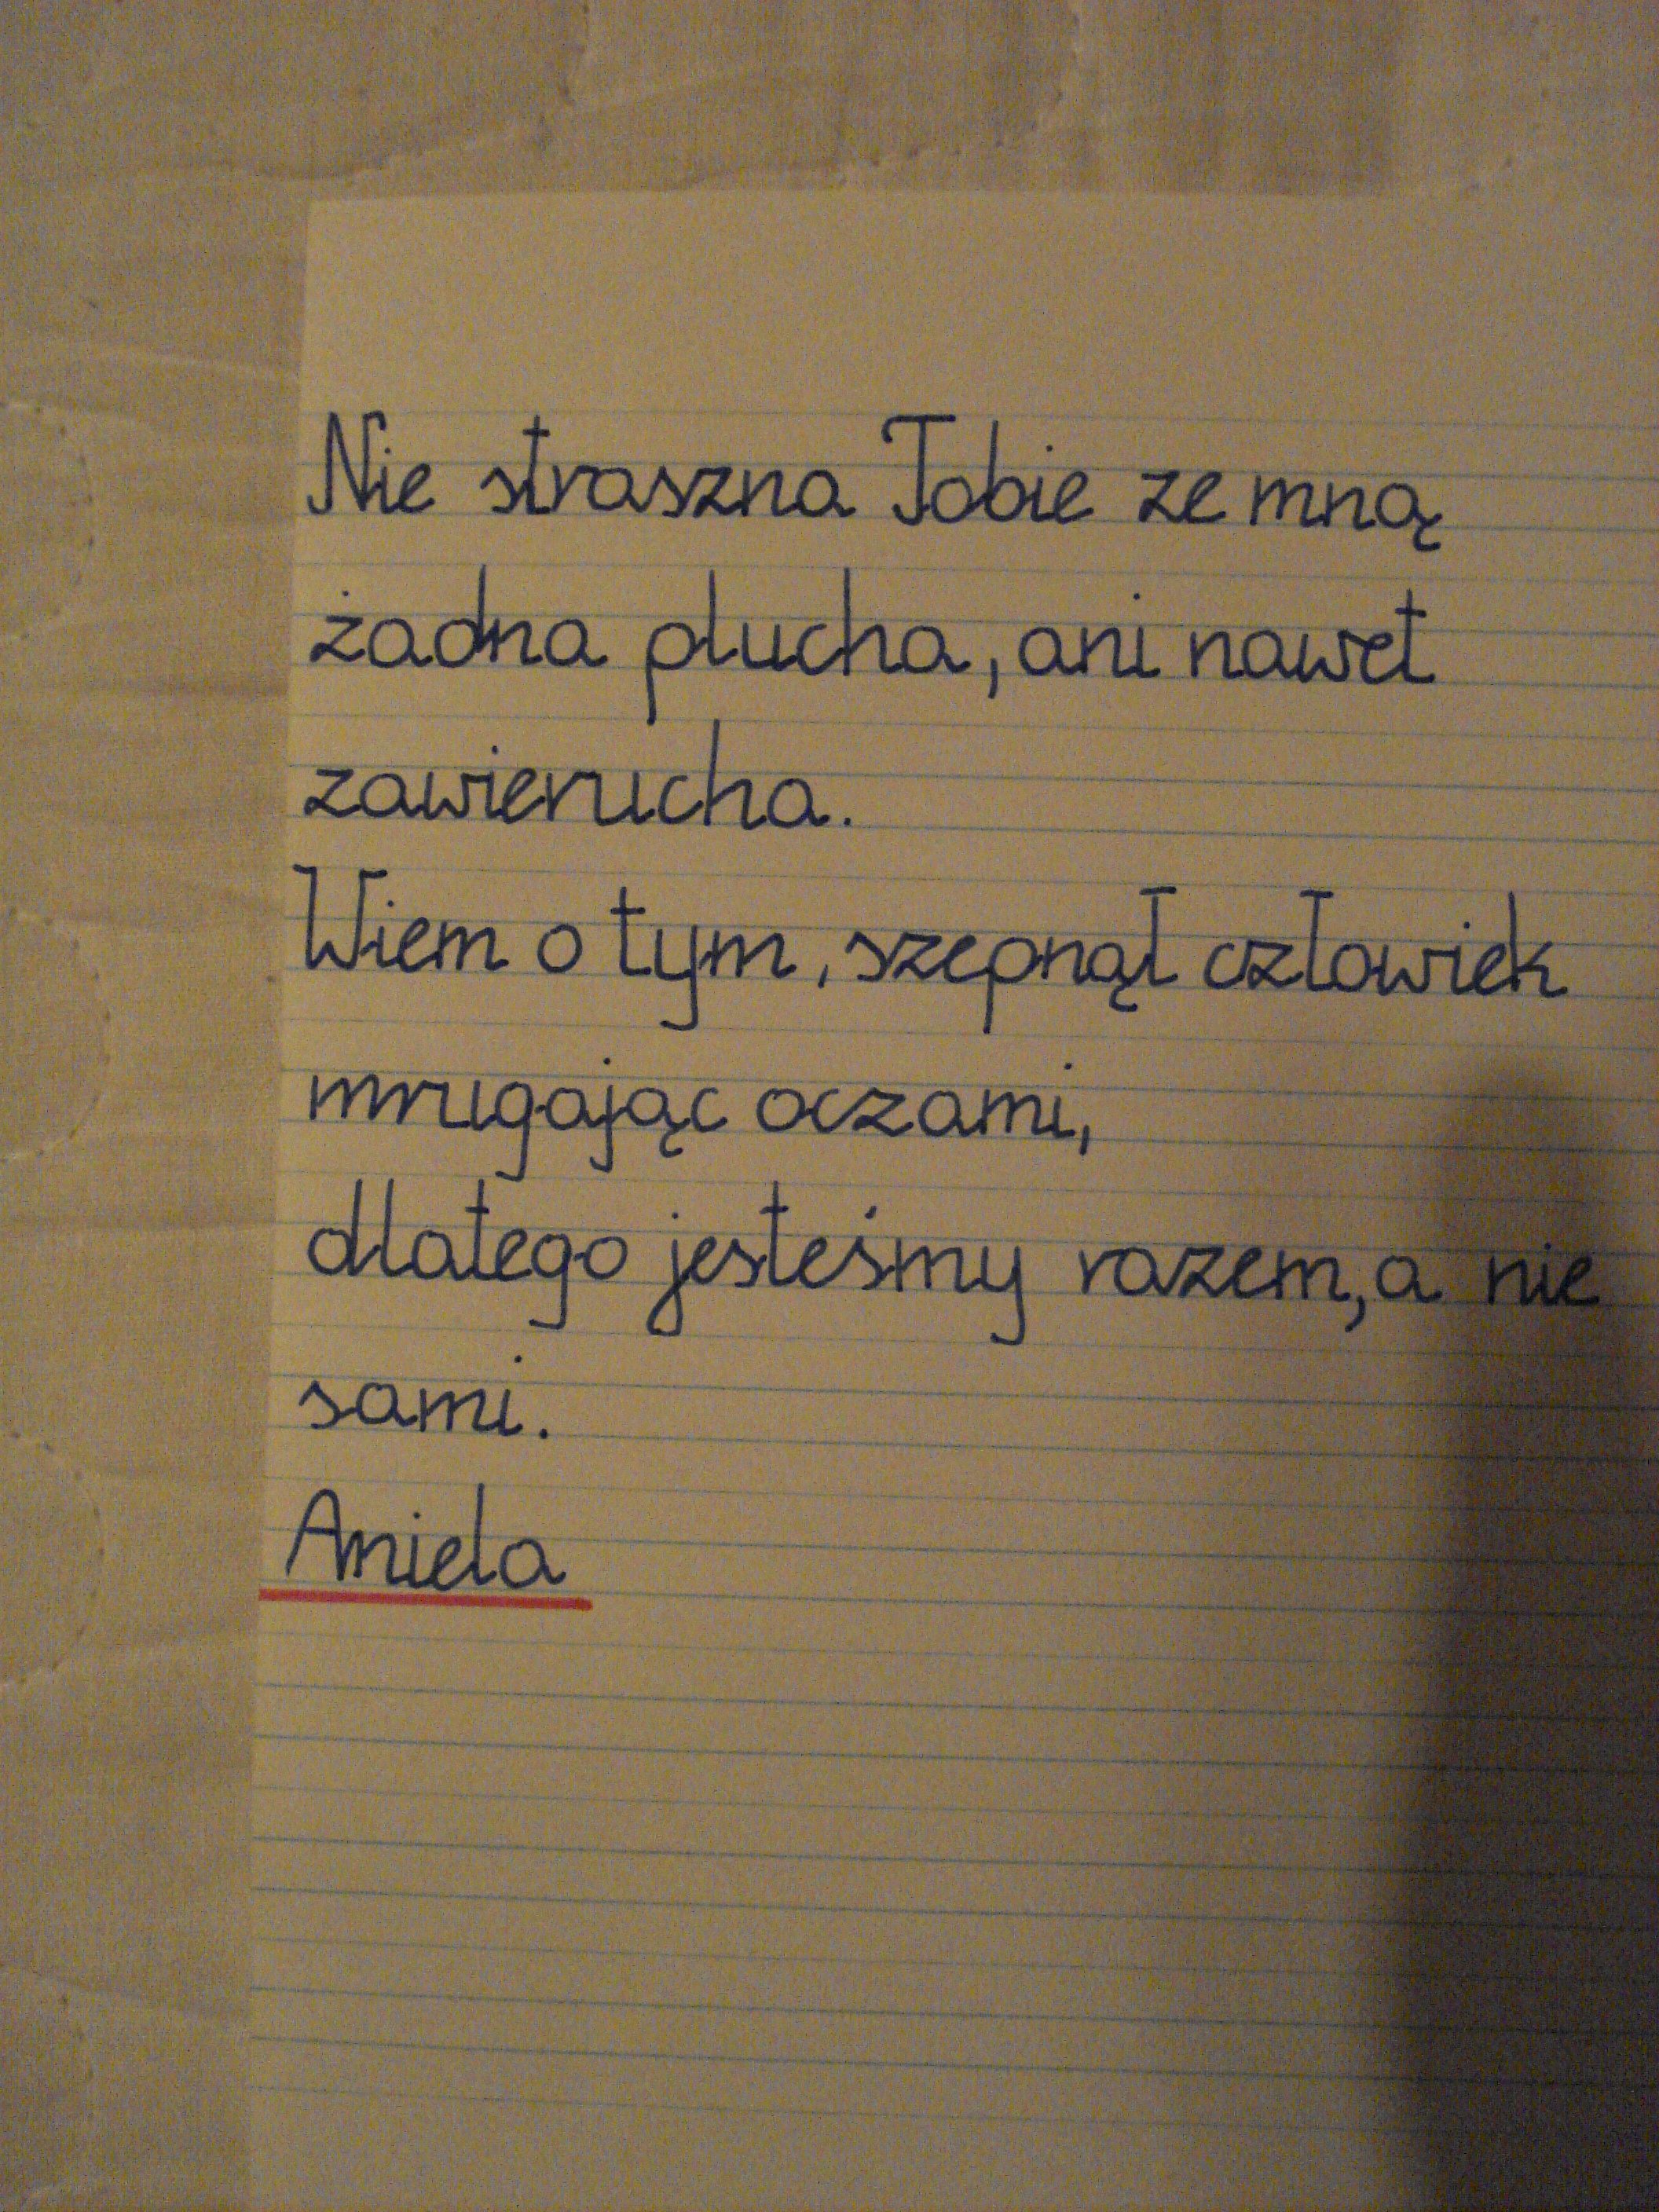 Nie straszna Tobie ze mną
żadna plucha, ani nawet
zawierucha.
Wiem o tym, szepnął człowiek
mrugając oczami,
dlatego jesteśmy razem, a nie
sami.
Aniela